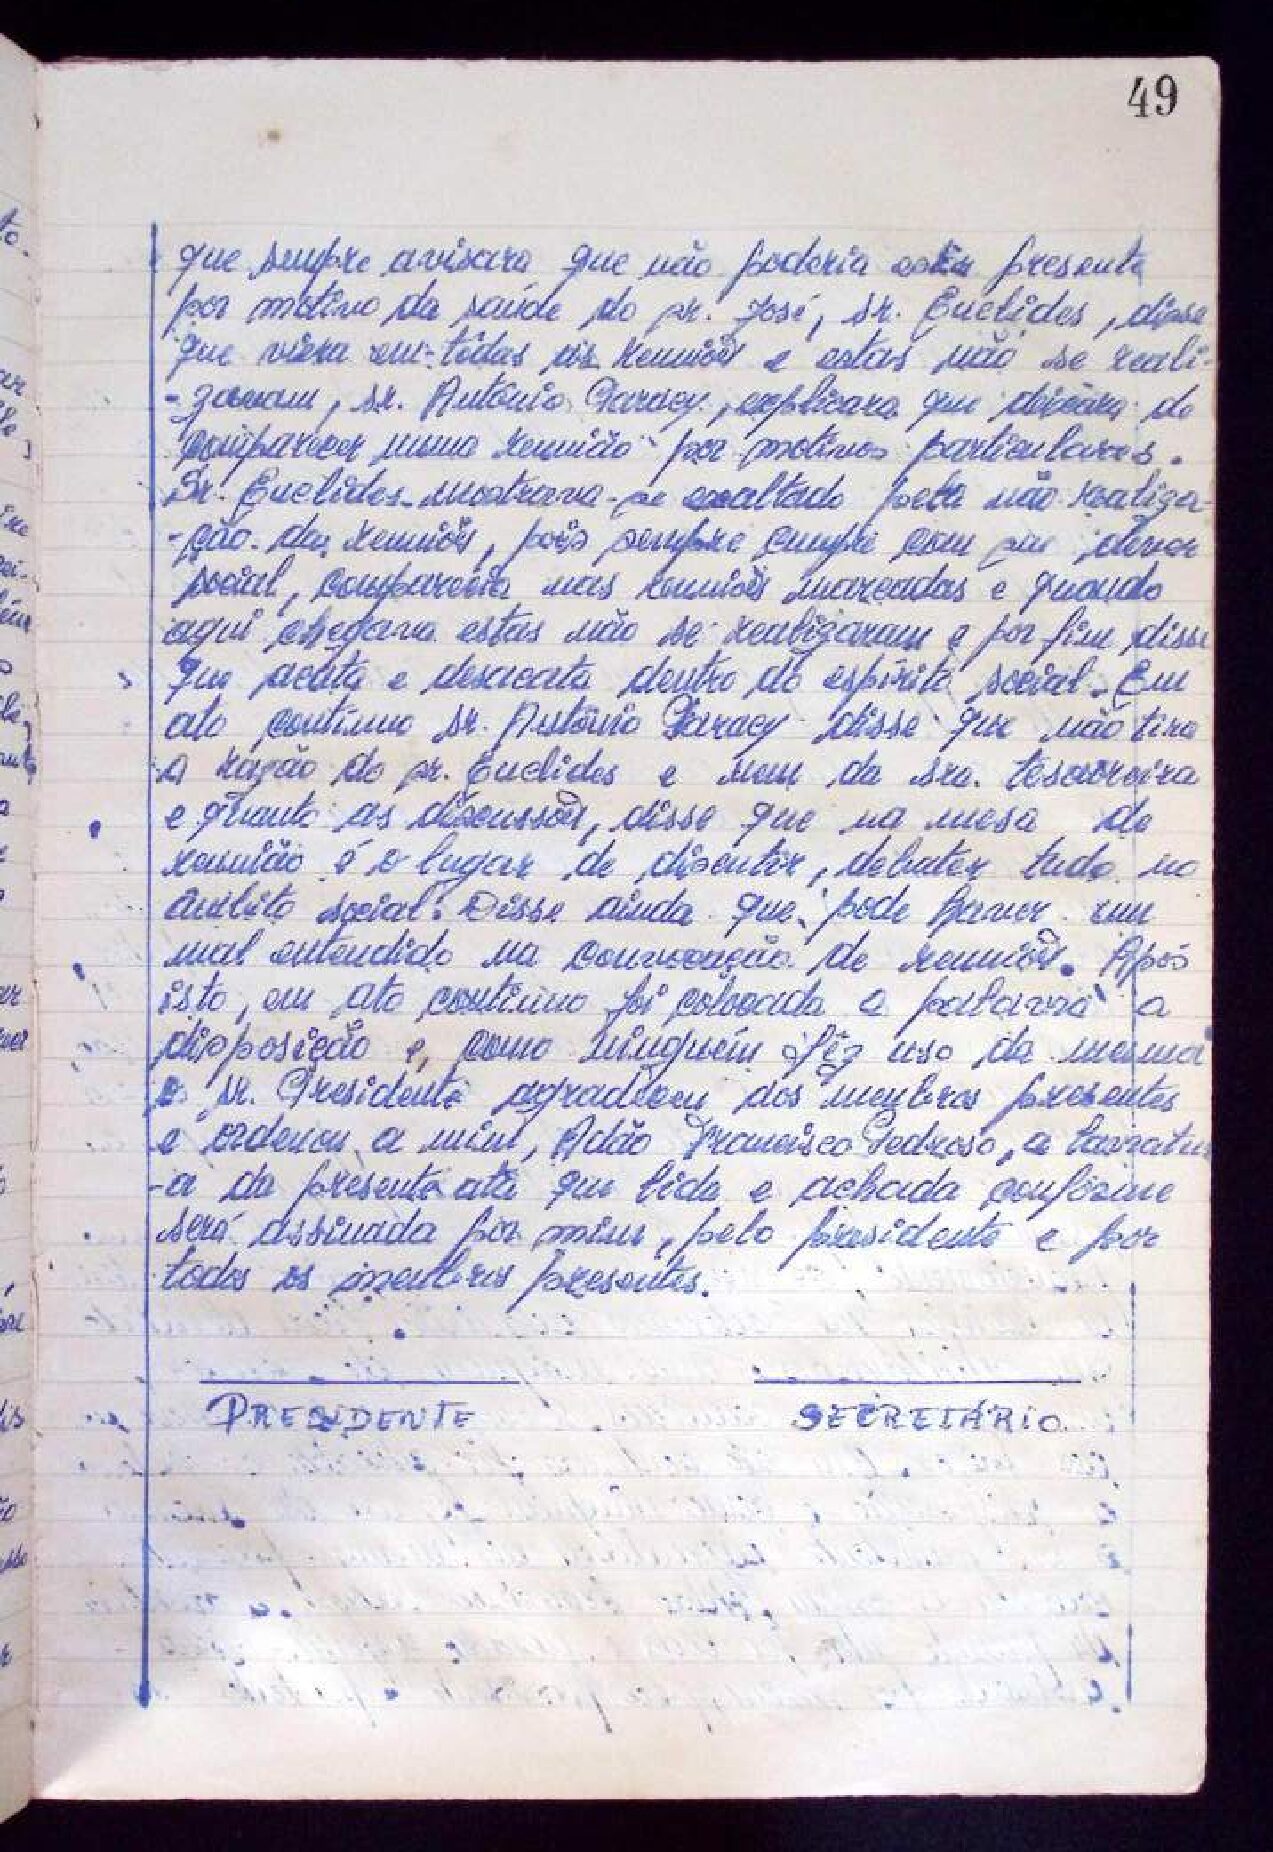 49
que sempre avisara que não poderia estar presente
por motivo da saúde do sr. José, sr. Euclides, disse
que viera em tôdas as reuniões e estas não se reali-
-zavam, sr. Antônio Garacy, explicara que deixara de
comparecer numa reunião por motivos particulares.
Sr. Euclides mostrava-se exaltado pela não realiza-
-ção das reuniões, pois sempre cumpre com seu dever
social, comparecia nas reuniões marcadas e quando
aqui chegava estas não se realizaram e por fim disse
que acata e desacata dentro do espírito social. Em
ato contínuo sr. Antônio Garacy disse que não tira
a razão do sr. Euclides e nem da sra. tesoureira
e quanto as discussões, disse que na mesa de
reunião é o lugar de discutir, debater tudo no
âmbito social. Disse ainda que pode haver um
mal entendido na convocação de reuniões. Após
isto, em ato contínuo foi colocada a palavra a
disposição e, como ninguém fêz uso da mesma
o sr. Presidente agradeceu aos membros presentes
e ordenou a mim, Adão Francisco Pedroso, a lavratur
-a da presente ata que lida e achada conforme
será assinada por mim, pelo presidente e por
todos os membros presentes.
PRESIDENTE SECRETÁRIO